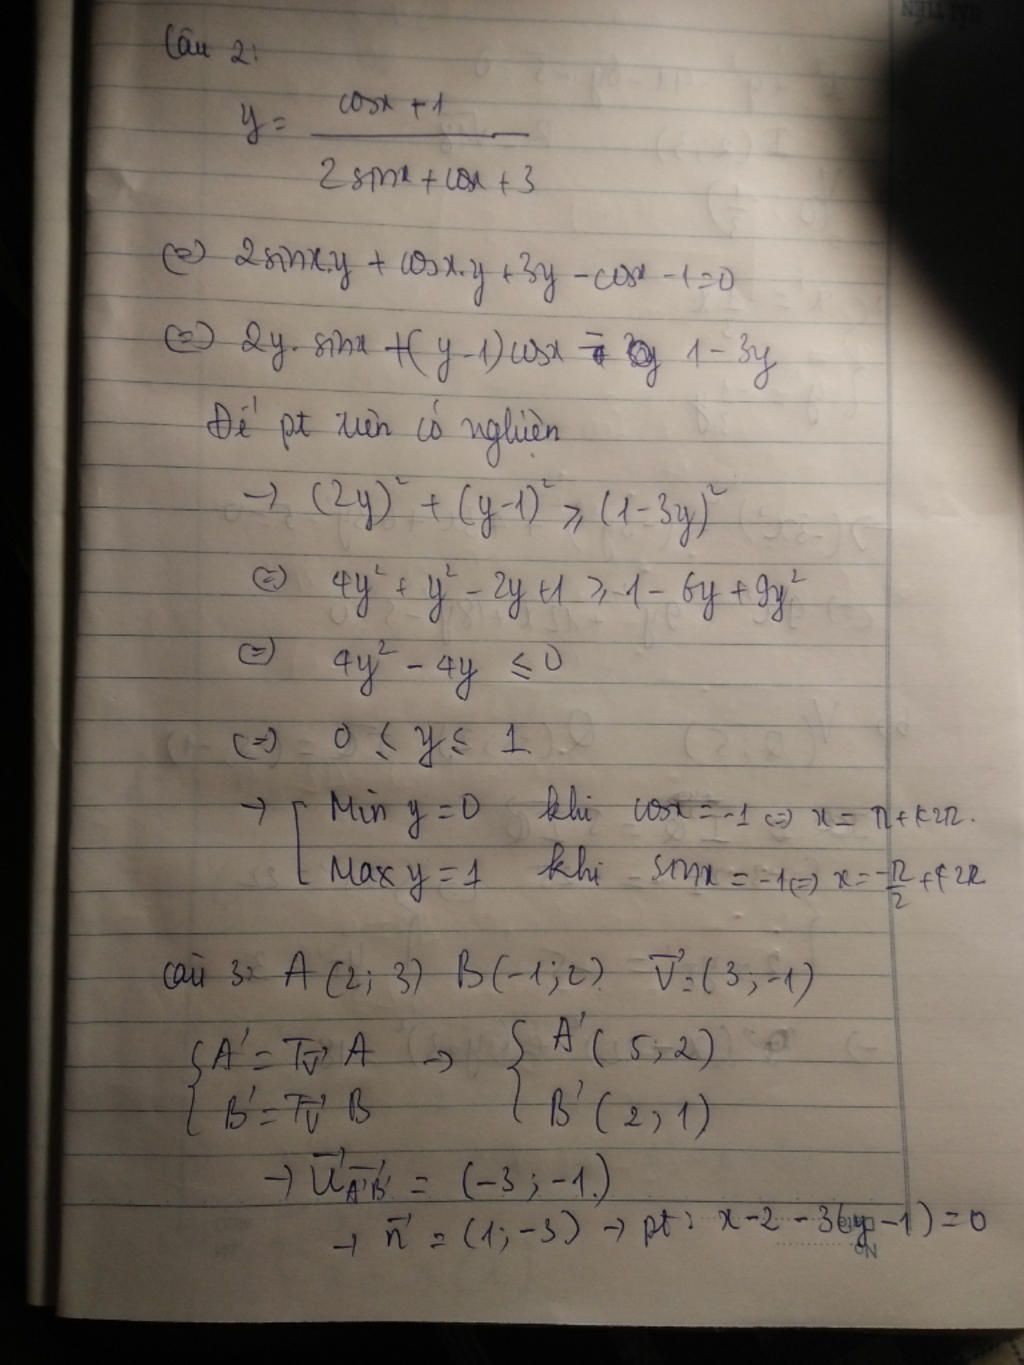 Câu 2:
y = \frac{cosx + 1}{2 sinx + cosx + 3}
(=) 2sinx.y + cosx.y + 3y - cosx - 1 = 0
(=) 2y. sinx + (y - 1) cosx = 1 - 3y
Để pt trên có nghiện
→ (2y)² + (y-1)² ≥ (1-3y)²
(=) 4y² + y² - 2y + 1 ≥ 1 - 6y + 9y²
(=) 4y² - 4y ≤ 0
(=) 0 ≤ y ≤ 1
→ [ Min y = 0 khi cosx = -1 (=) x = π + k2π.
Max y = 1 khi sinx = -1 (=) x = \frac{-π}{2} + k2π
câu 3: A (2; 3) B (-1; 2) \vec{V} = (3; -1)
{ A' = T\vec{v} A → { A' (5; 2)
B' = T\vec{v} B B' (2; 1)
→ \vec{U}\vec{A'B'} = (-3; -1.)
→ \vec{n} = (1; -3) → pt: x - 2 - 3(y - 1) = 0